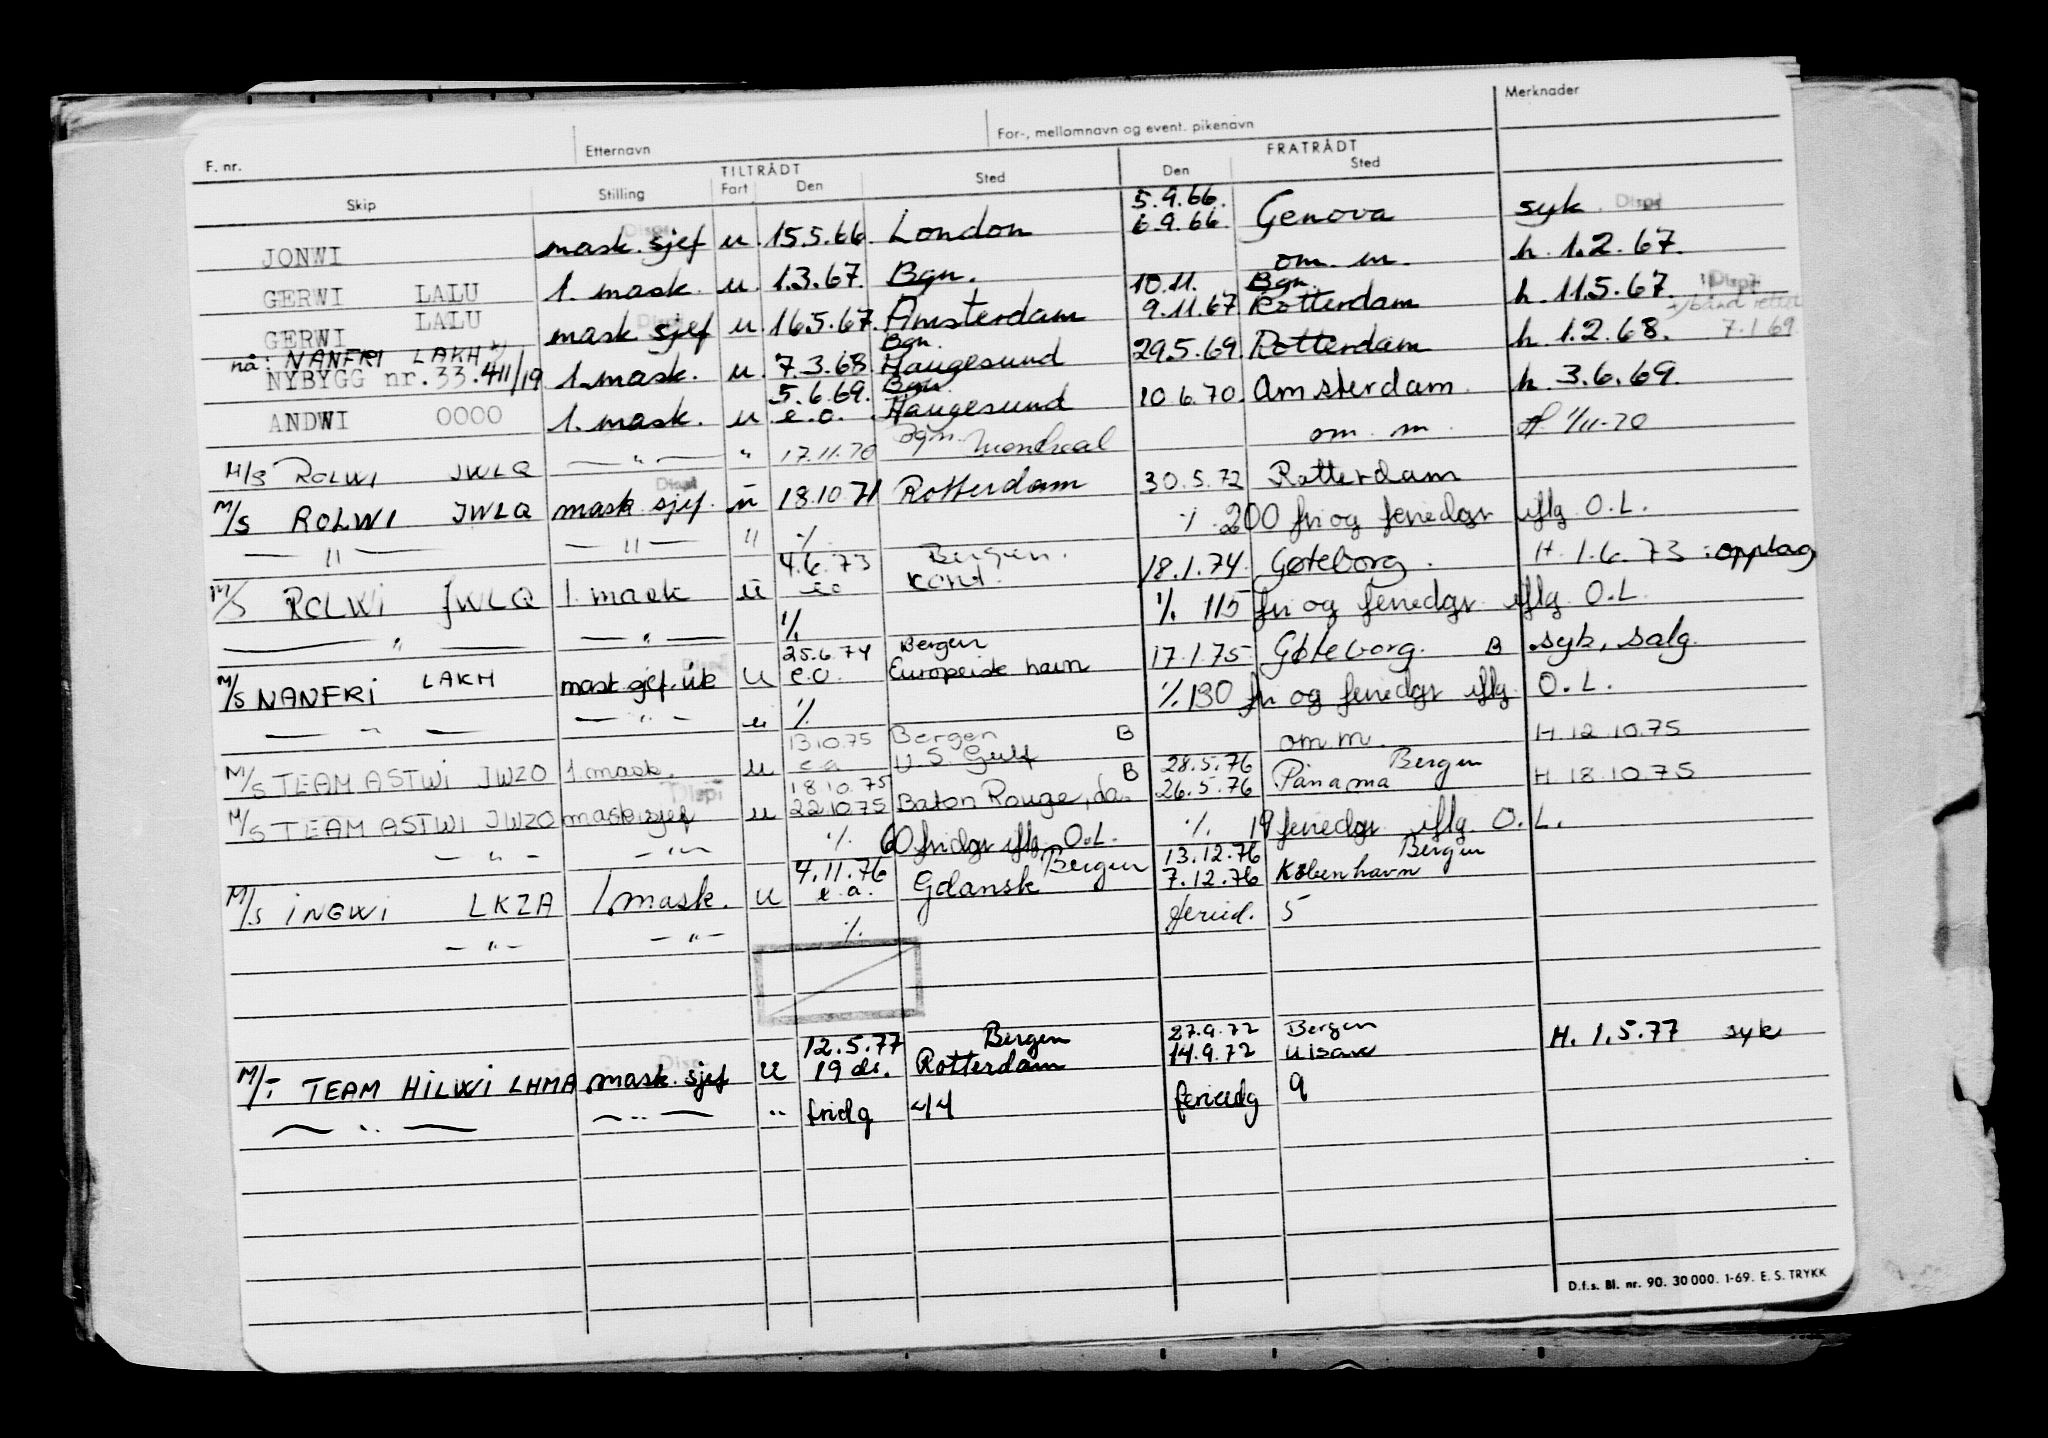 Merknader
F. nr. Etternavn For-, mellomnavn og event. pikenavn
TILTRÅDT FRATRÅDT
Skip Stilling Fart Den Sted Den Sted
5.9.66.
JONWI mask. sjef u. 15.5.66. London 6.9.66 Genova syk Disp
om. m. h. 1.2.67.
GERWI LALU 1. mask. u. 1.3.67. Bgn. 10.11. Bgn.
GERWI LALU mask sjef u. 16.5.67. Amsterdam 9.11.67 Rotterdam h. 11.5.67 Disp
nå: NANFRI LAKH Bgn. 7.1.69
NYBYGG nr. 33.411/19 1. mask. u. 7.3.68. Haugesund 29.5.69. Rotterdam h. 1.2.68.
5.6.69. Bgn.
ANDWI OOOO 1. mask. u e.o. Haugesund 10.6.70. Amsterdam. h. 3.6.69.
M/S ROLWI JWLQ — " — " 17.11.70 Bgn. Montreal om. m. 1/11-70
M/S ROLWI JWLQ mask. sjef. u 18.10.71 Rotterdam 30.5.72 Rotterdam
— " — — " — " % % 200 fri og feriedgr iflg. O.L.
4.6.73 Bergen.
M/S ROLWI JWLQ 1. mask u eo kont. 18.1.74. Gøteborg. H. 1.6.73 : opplag
— " — — " — % % 115 fri og feriedgr iflg. O.L.
25.6.74 Bergen
M/S NANFRI LAKH mask sjef. vik u e.o. Europeisk havn 17.1.75 Gøteborg. B syk, salg.
— " — — " — u % % 130 fri og feriedgr iflg. O.L.
13.10.75 Bergen B
M/S TEAM ASTWI JWZO 1. mask. u e.a U.S. Gulf om m. H 12.10.75
18.10.75 B 28.5.76 Bergen
M/S TEAM ASTWI JWZO mask sjef u 22.10.75 Baton Rouge, da. 26.5.76 Panama H. 18.10.75
— " — — " — % 60 fridgr iflg. O.L. % 19 feriedgr. iflg. O.L.
4.11.76 Bergen 13.12.76 Bergen
M/S INGWI LKZA 1. mask. u e.a. Gdansk 7.12.76 København
— " — — " — % feried. 5
12.5.77 Bergen 27.9.77 Bergen
M/T TEAM HILWI LHMA mask. sjef u 19 ds. Rotterdam 14.9.77 H. 1.5.77 syk
— " — — " — " fridg 44 feriedg 9
D.f.s. Bl. nr. 90. 30 000. 1-69. E. S. TRYKK